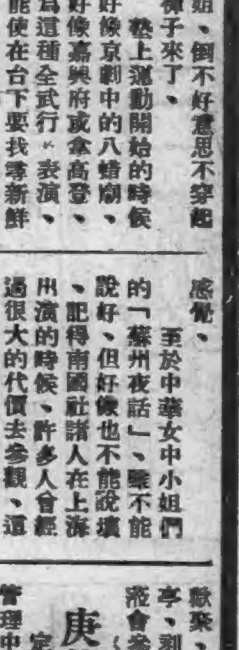 姐、倒不好意思不穿起
褲子來了、
墊上運動開始的時候
好像京劇中的八蜡廟、
好像嘉興府或拿高登、
為這種全武行〃表演、
能使在台下要找尋新鮮
感覺、
至於中華女中小姐們
的「蘇州夜話」、雖不能
說好、但好像也不能說壞
、記得南國社諸人在上海
出演的時候、許多人曾經
過很大的代價去參觀、這
獻來、
亭、到
液會參
庚
定
管理中